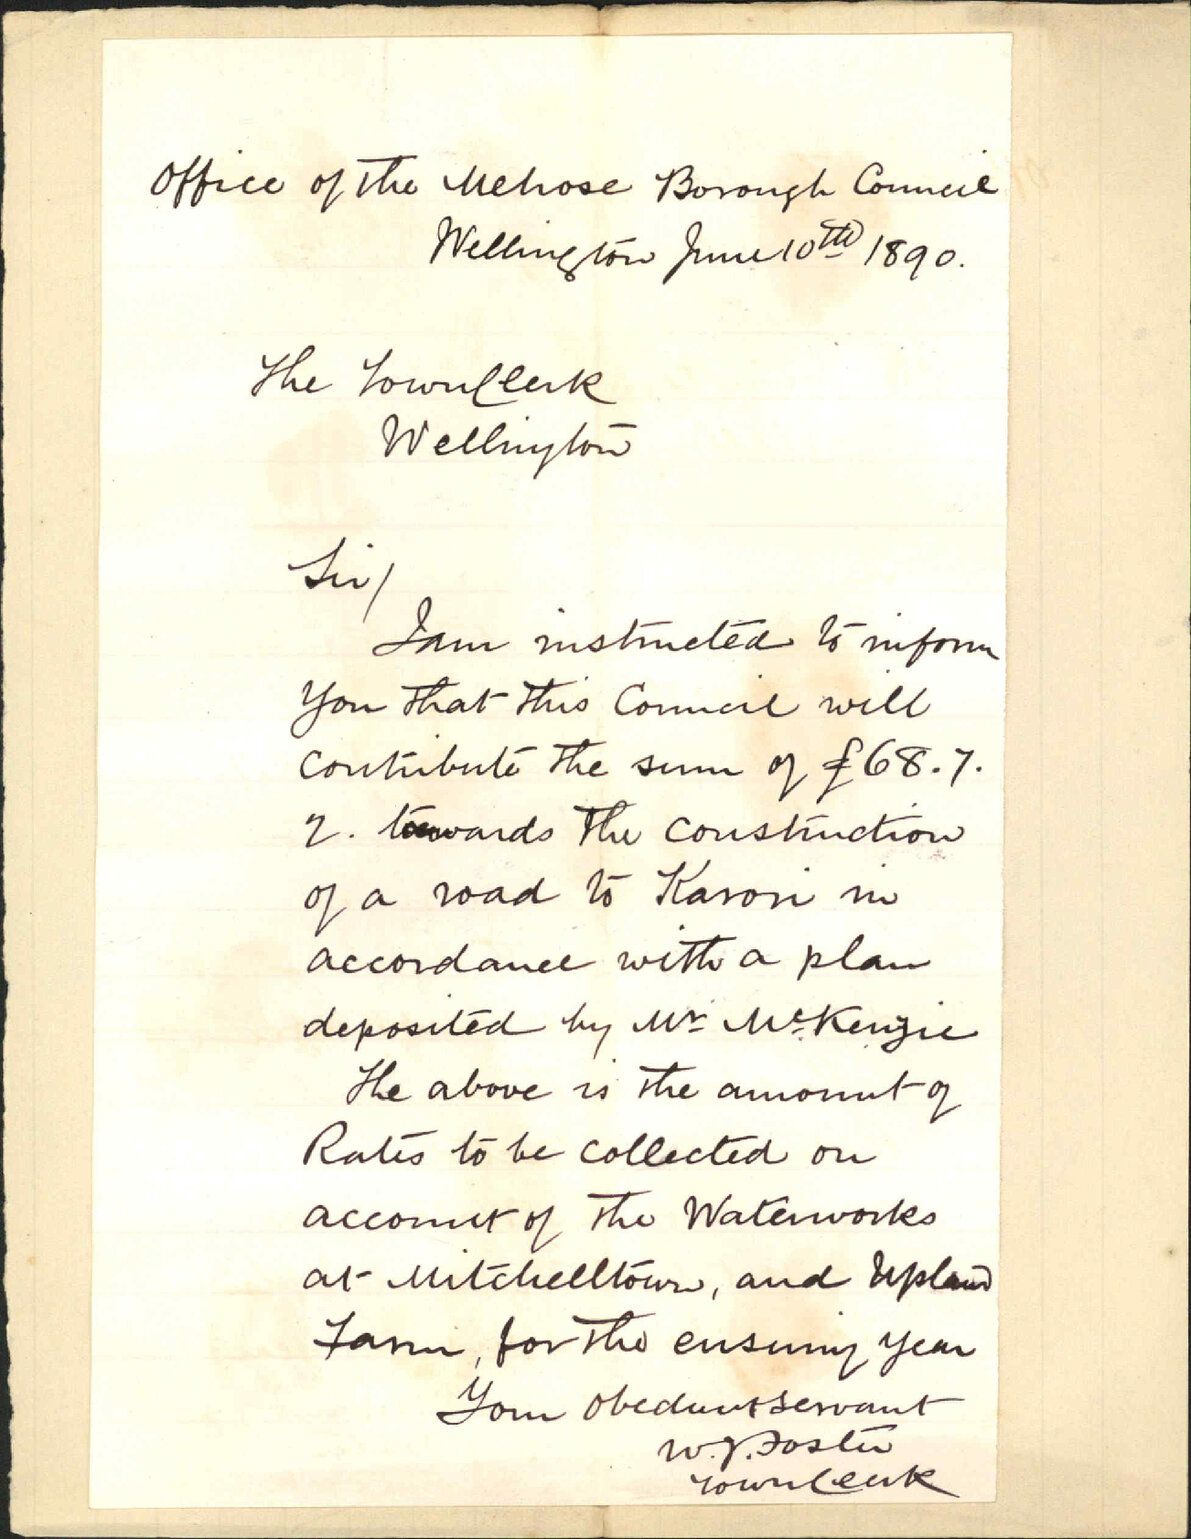 Office of the Melrose Borough Council
Wellington June 10th 1890.
The Town Clerk
Wellington
Sir/
I am instructed to inform
you that this Council will
contribute the sum of £68.7.
2. towards the construction
of a road to Karori in
accordance with a plan
deposited by Mr McKenzie
The above is the amount of
Rates to be collected on
account of the Waterworks
at Mitchelltown, and Upland
Farm, for the ensuing year
Your obedient servant
W. J. Foster
Town Clerk